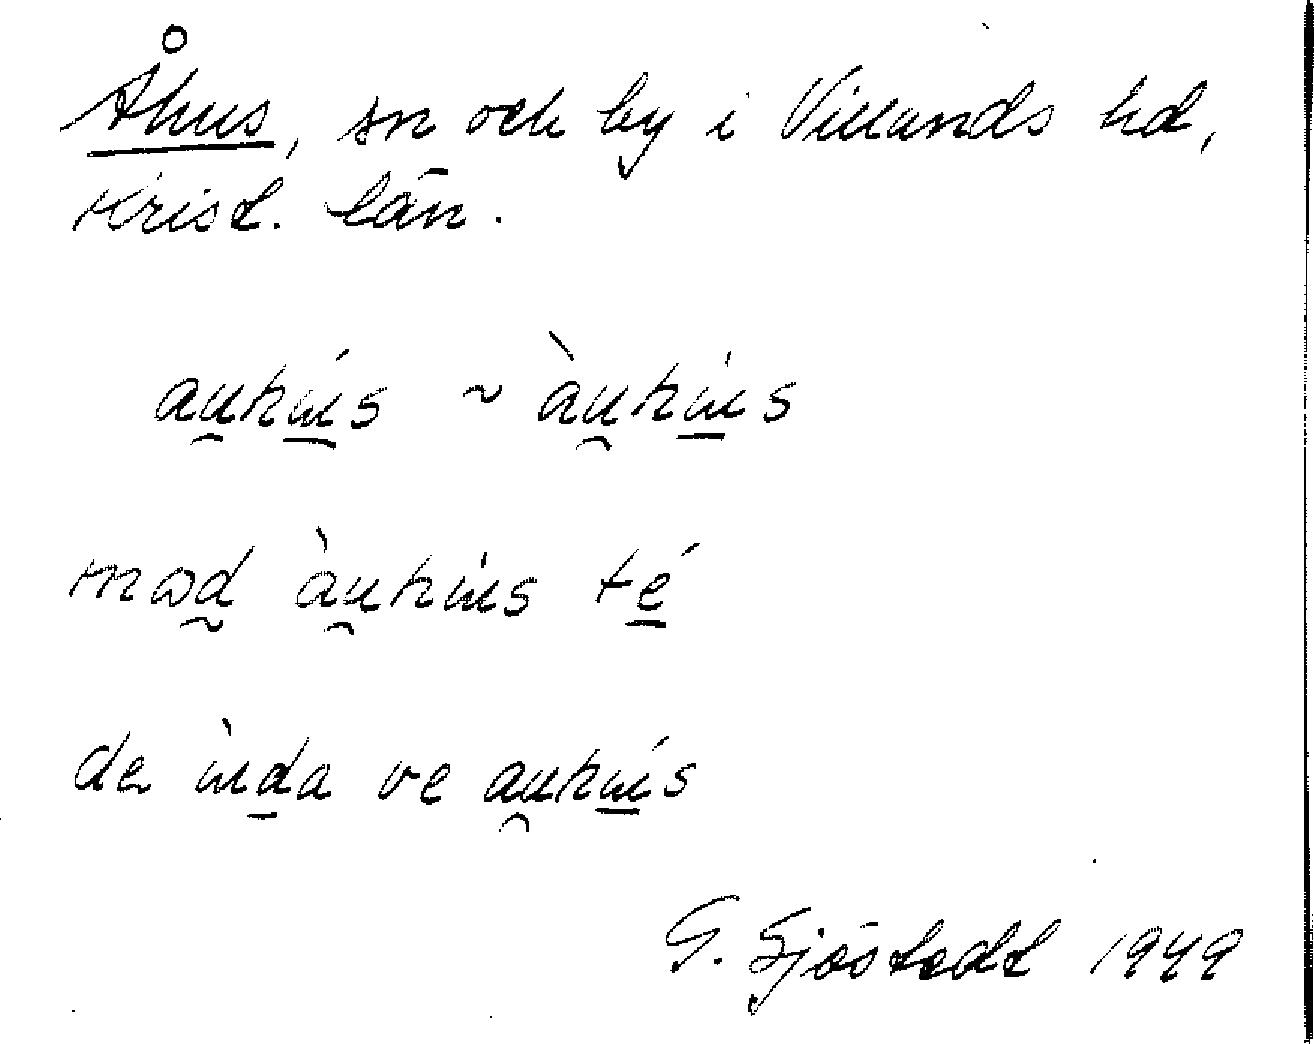 Åhus, sn och by i Villands hd,
Krist. län.
au̯hú̲s ~ àu̯hu̲s
mad àu̯hus té̲
de ùnda ve au̯hú̲s
G. Sjöstedt 1949